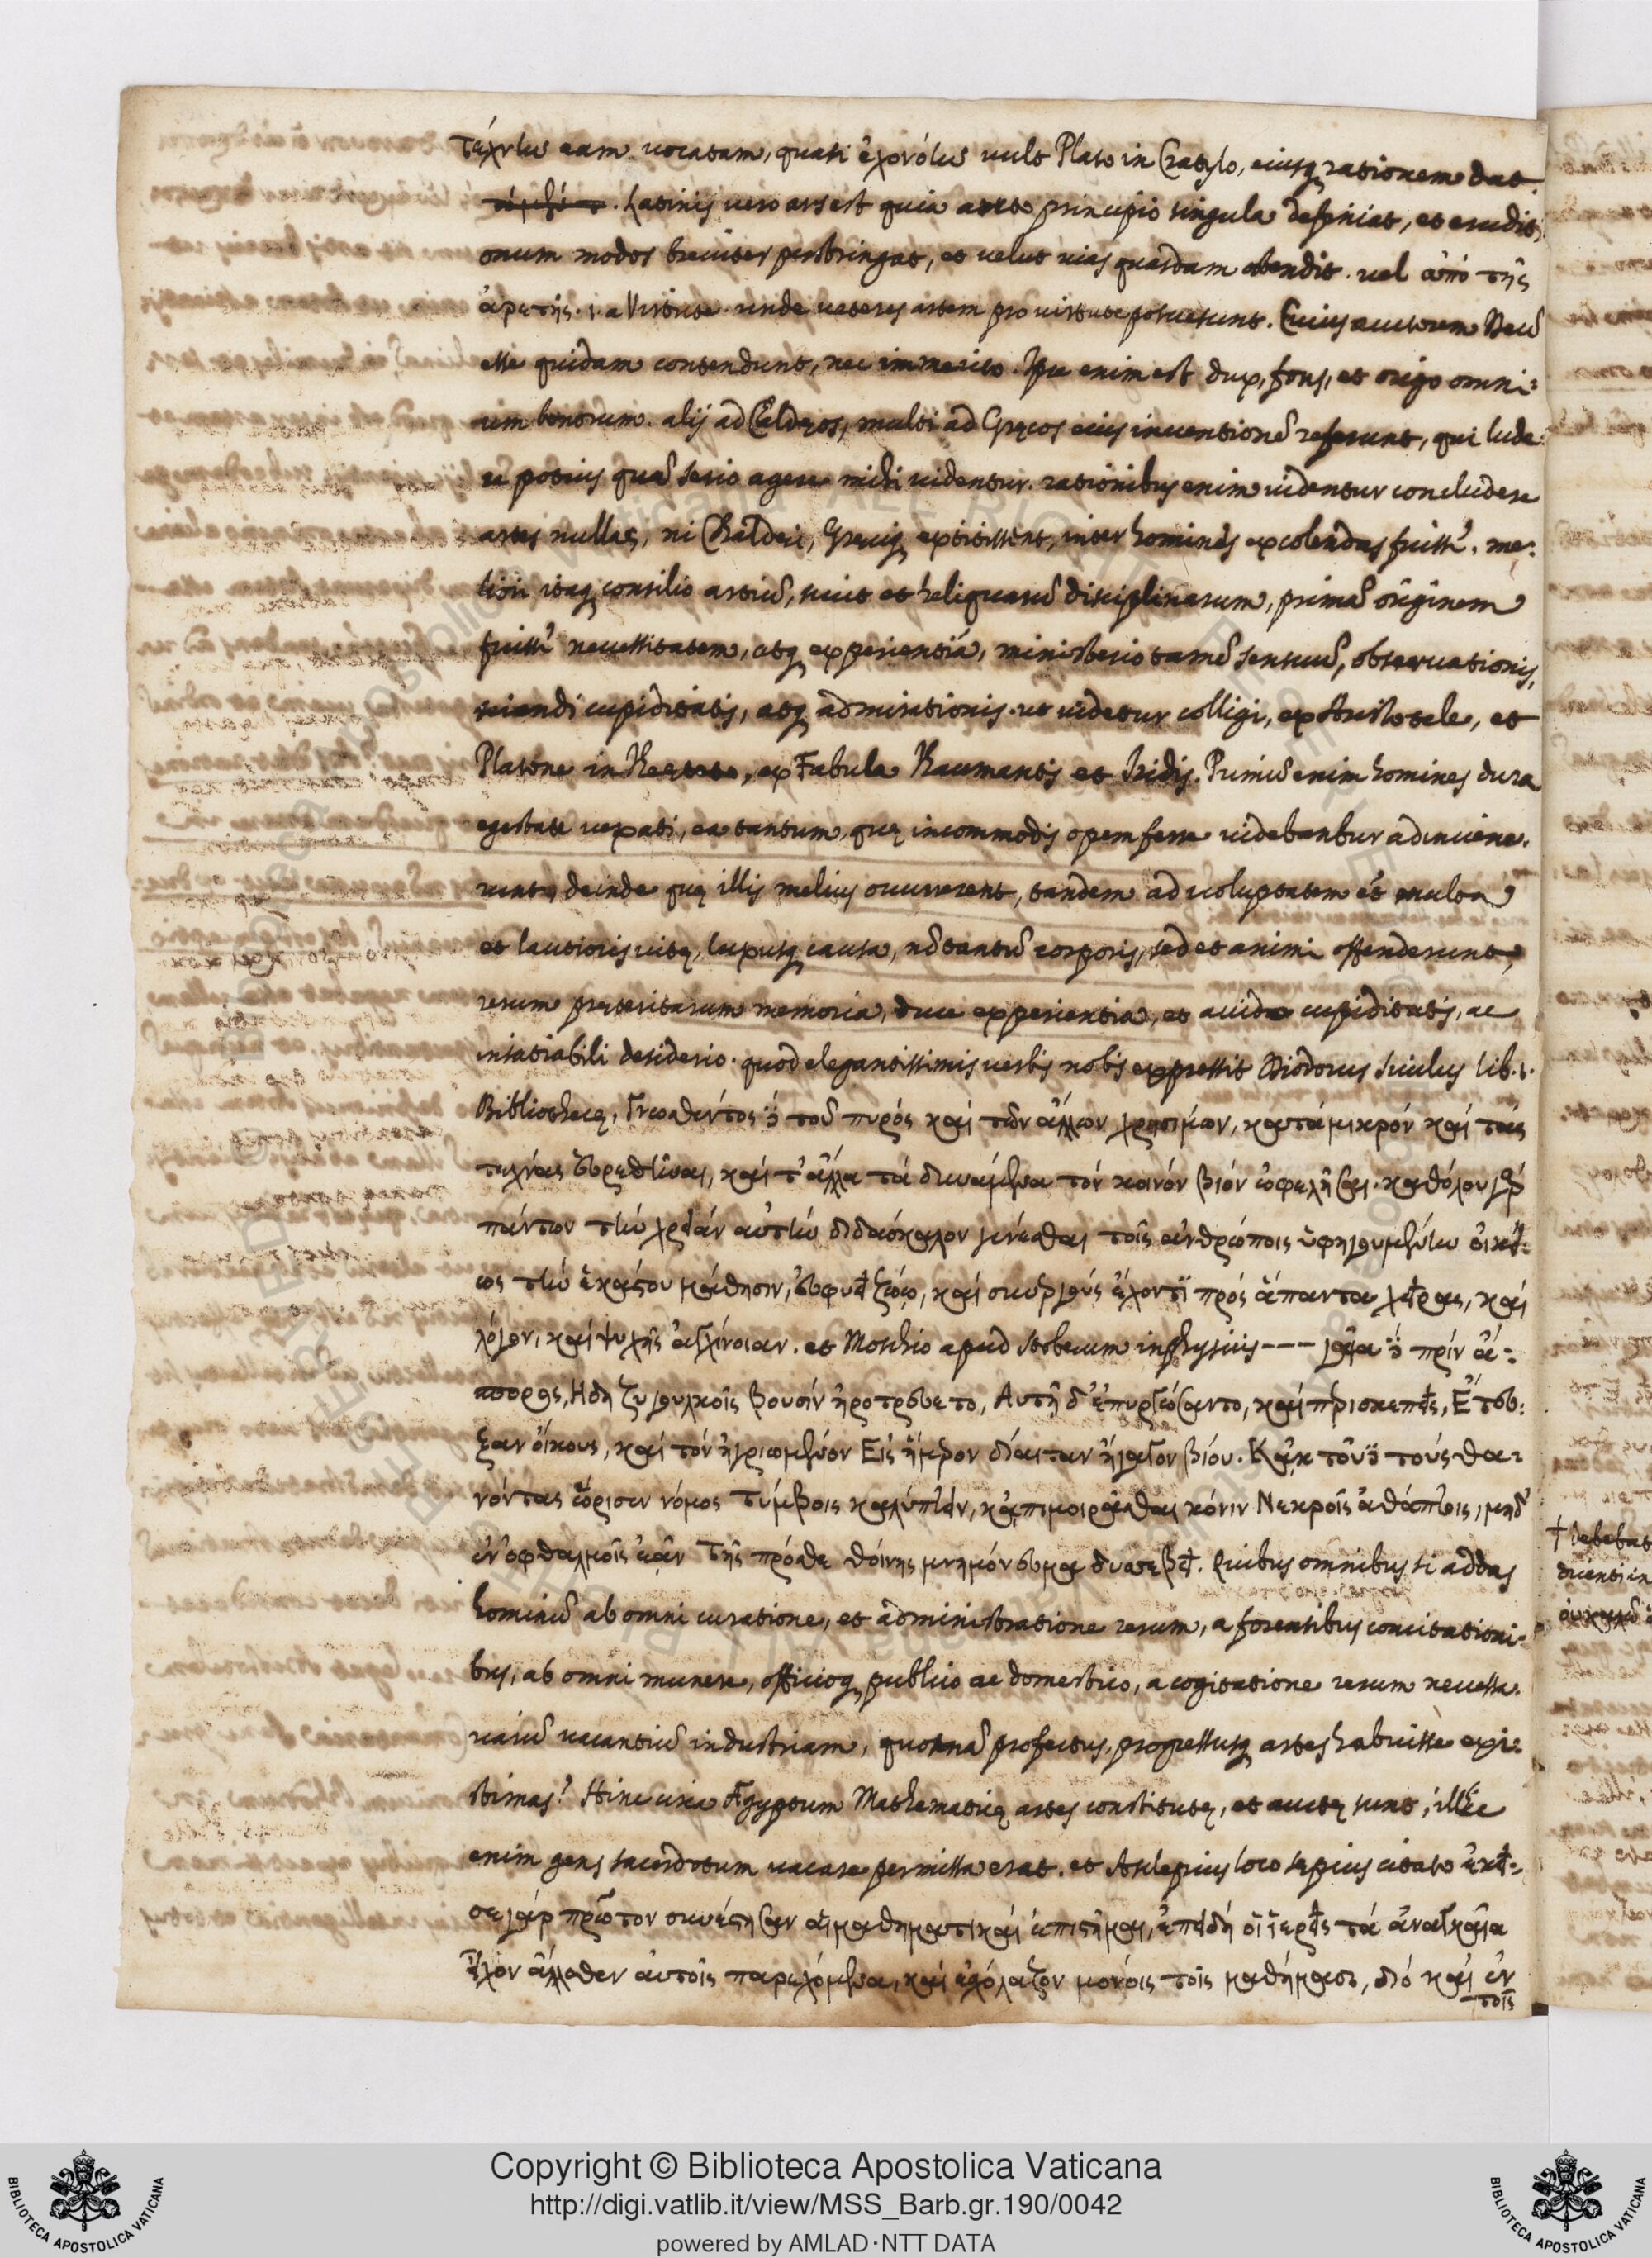 τέχνην eam vocatam, quasi ἐχονόην vult Plato in Cratylo, eiusq rationem dat.
Latinis vero ars est quia arcto principio singula definiat, et erudit,
onum modos breviter perstringat, et velut vias quasdam ostendit. vel ἀπὸ τῆς
ἀρετῆς .i. a Virtute. unde veteres artem pro virtute posuerunt. Cuius autorem Deū
esse quidam contendunt, nec immerito. Ipse enim est dux, fons, et origo omni:
um bonorum. alij ad Caldęos, multi ad Gręcos eius inventionē referunt, qui lude:
re potius quā serio agere mihi videntur. rationibus enim videntur concludere
artes nullas, ni Chaldei, Greciq extitissent, inter homines excolendas fuisse. me:
liori itaq consilio artiū, sicut et reliquarū disciplinarum, primā originem
fuisse necessitatem, atq experientiā, ministerio tamē sensuū, observationis,
sciendi cupiditatis, atq admirationis. ut videtur colligi, ex Aristotele, et
Platone in Theeteto, ex Fabula Thaumantis et Iridis. Primū enim homines dura
egestate vexati, ea tantum, quę incommodis opem ferre videbantur adinvene.
runt, deinde quę illis melius succurrerent, tandem ad voluptatem et multa
et lautioris vitę, luxusq causa, nō tantū corporis, sed et animi offenderunt,
rerum pręteritarum memoria, duce experientia, et avide cupiditatis, ac
insatiabili desiderio. quod elegantissimis verbis nobis expressit Diodorus Siculus lib. 1.
Bibliothecę, Γνωσθέντος δὲ τοῦ πυρὸς καὶ τῶν ἄλλων χρησίμων, κατὰ μικρὸν καὶ τὰς
τέχνας εὑρεθῆναι, καὶ τ' ἄλλα τὰ δυνάμενα τὸν κοινὸν βίον ὠφελῆσαι. καθόλου γὰρ
πάντων τὴν χρείαν αὐτὴν διδάσκαλον γενέσθαι τοῖς ἀνθρώποις ὑφηγουμένην οἰκεί:
ως τὴν ἑκάστου μάθησιν, εὐφυεῖ ζώῳ, καὶ συνεργοὺς ἔχοντι πρὸς ἅπαντα χεῖρας, καὶ
λόγον, καὶ ψυχῆς ἀγχίνοιαν. et Moschio apud Stobeum in physicis --- γαῖα δὲ πρὶν ἄ:
σπορος, Ηδη ζυγουλκοῖς βουσὶν ἠροτρεύετο, Αυτὴ δ' ἐπυργώσαντο, καὶ περισκεπεῖς, Ἔτευ:
ξαν οἴκους, καὶ τὸν ἠγριωμένον Εἰς ἥμερον δίαιταν ἤγαγον βίον. Κἀκ τοῦδε τοὺς θα:
νόντας ὥρισεν νόμος τύμβοις καλύπτειν, κἀπιμοιρᾶσθαι κόνιν Νεκροῖς ἀθάπτοις, μηδ'
ἐν ὀφθαλμοῖς ἐᾶν Τῆς πρόσθε θοίνης μνημόνευμα δυσσεβεῖ. Quibus omnibus si addas
hominū ab omni curatione, et administratione rerum, a forensibus concitationi:
bus, ab omni munere, officioq publico ac domestico, a cogitatione rerum necessa.
riarū vacantiū industriam, quosnā profectus, progressusq artes habuisse exi:
stimas? Hinc circa Ægyptum Mathematicę artes constitutę, et auctę sunt, illic
enim gens sacerdotum vacare permissa erat. et Asclepius loco sępius citato ἐκεῖ:
σε γὰρ πρῶτον συνέστησαν αἱ μαθηματικαὶ ἐπιστῆμαι, ἐπειδὴ οἱ ἱερεῖς τὰ ἀναγκαῖα
εἶχον ἄλλοθεν αὐτοῖς παρεχόμενα, καὶ ἐσχόλαζον μονοις τοῖς μαθήμασι, διὸ καὶ ἐν
τοῖς
Copyright © Biblioteca Apostolica Vaticana
http://digi.vatlib.it/view/MSS_Barb.gr.190/0042
powered by AMLAD·NTT DATA
BIBLIOTECA APOSTOLICA VATICANA
BIBLIOTECA APOSTOLICA VATICANA